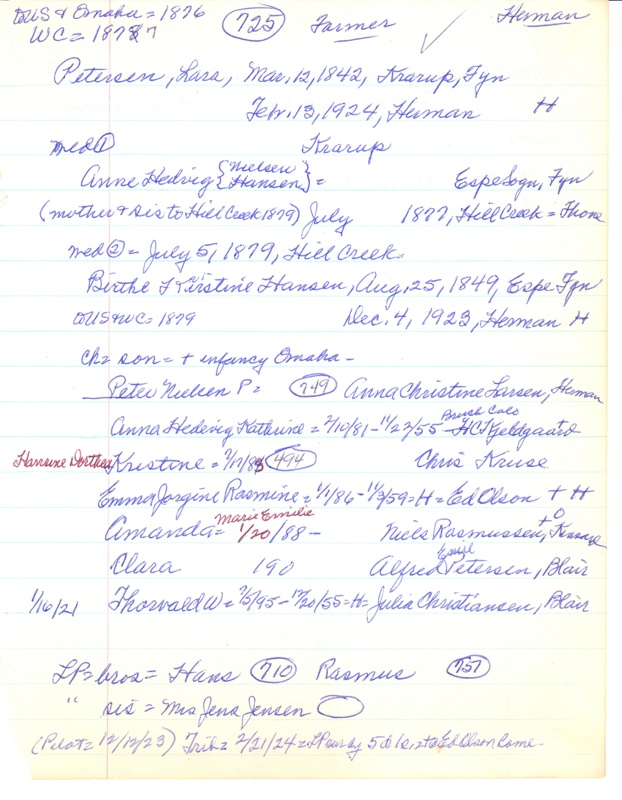 toUS & Omaha = 1876 725 Farmer Herman
WC = 1877
Petersen, Lars, Mar, 12, 1842, Krarup, Fyn
Febr. 13, 1924, Herman H
med① Krarup
Anne Hedvig {Nielsen Hansen} = Espe Sogn, Fyn
(mother & sis to Hill Creek 1879) July 1877, Hill Creek =
med② = July 5, 1879, Hill Creek
Birthe Kirstine Hansen, Aug, 25, 1849, Espe Fyn
toUS&WC = 1879 Dec. 4, 1923, Herman H
Ch = son = + infancy Omaha -
Peter Nielsen P = 749 Anna Christine Larsen, Herman
Anna Hedevig Kathrine = 2/10/81 - 11/22/55 - Brush Colo HC Kjeldgaard
Hansine Dorthea Kristine = 494 Chris Kruse
Emma Jorgine Rasmine = 1/1/86 - 11/3/59 = H = Ed Olson + H
Amanda = Marie Emilie 1/20/88 - Niels Rasmussen, + O
Clara 190 Alfred Emil Petersen, Blair
1/16/21 Thorvald W = 7/5/95 - 12/20/55 = H = Julia Christiansen, Blair
LP = bros = Hans 710 Rasmus 757
" sis = Mrs Jens Jensen
(Pilot = 12/12/23) Trib = 2/21/24 = LP Ed Olson home.